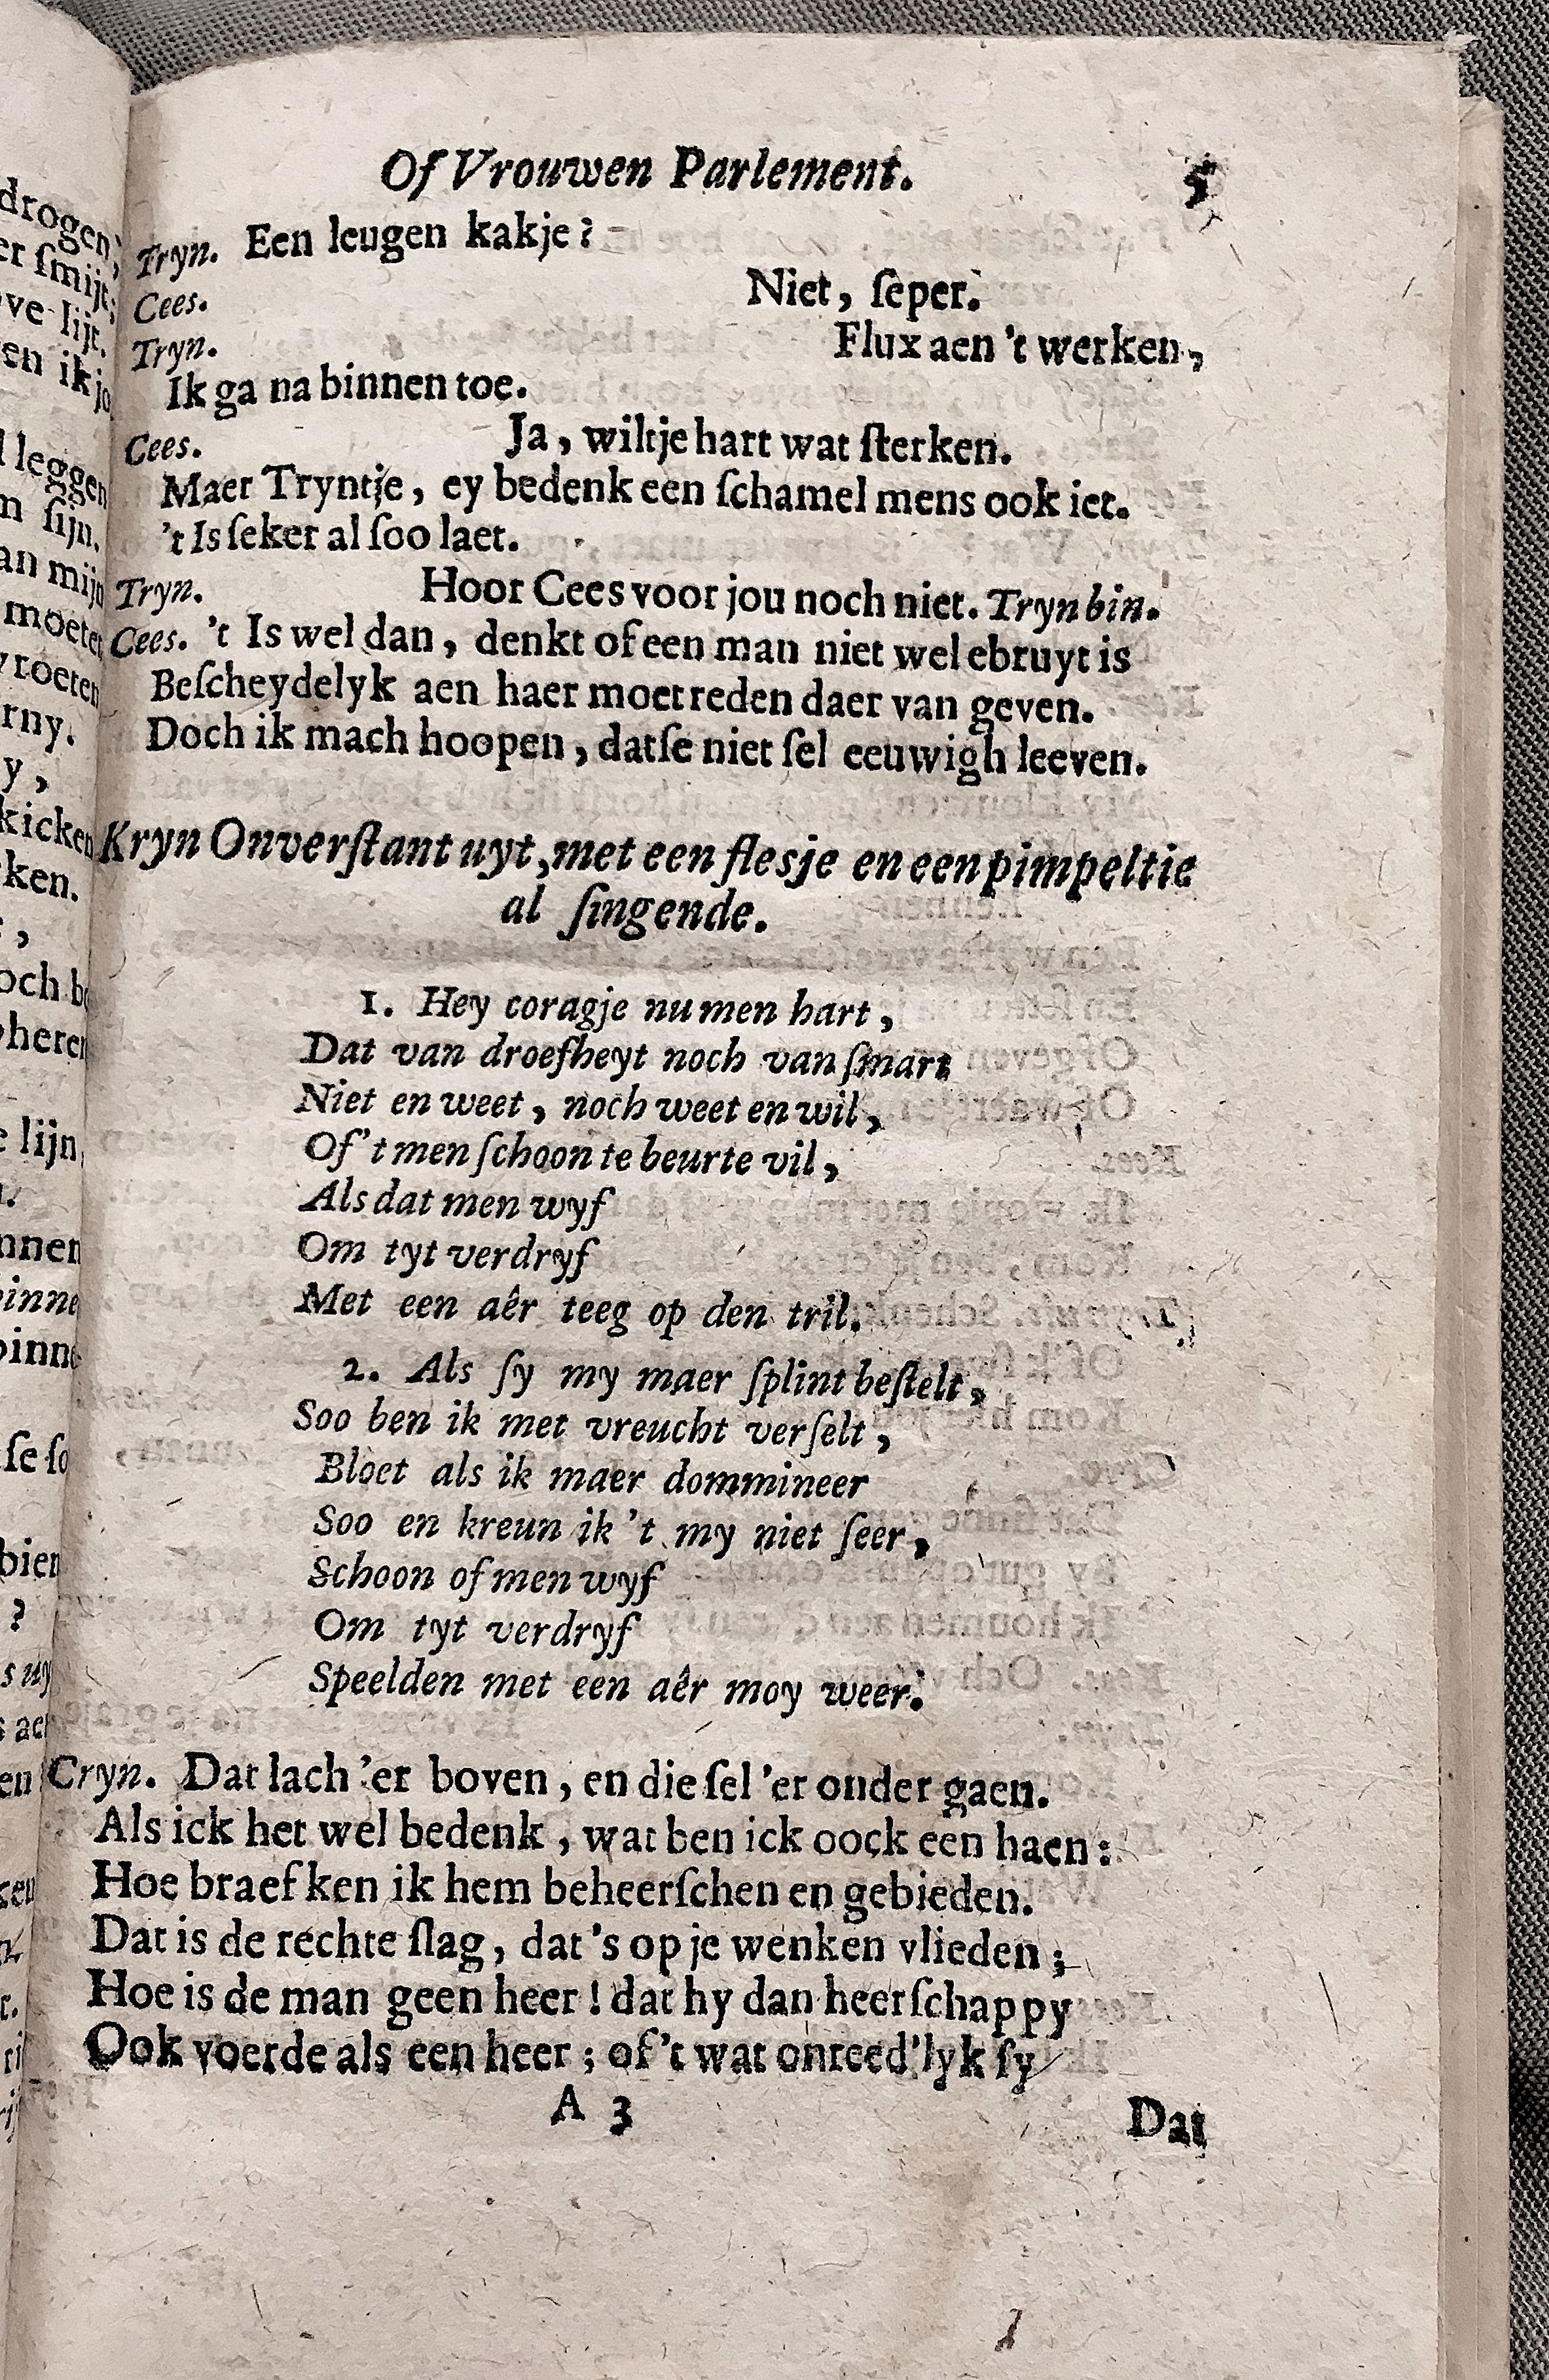 Of Vrouwen Parlement. 5
Tryn. Een leugen kakje?
Cees. Niet, ſeper.
Tryn. Flux aen 't werken,
Ik ga na binnen toe.
Cees. Ja, wiltje hart wat ſterken.
Maer Tryntje, ey bedenk een ſchamel mens ook iet.
't Is ſeker al ſoo laet.
Tryn. Hoor Cees voor jou noch niet. Tryn bin.
Cees. 't Is wel dan, denkt of een man niet wel ebruyt is
Beſcheydelyk aen haer moet reden daer van geven.
Doch ik mach hoopen, datſe niet ſel eeuwigh leeven.
Kryn Onverſtant uyt, met een flesje en een pimpeltie
al ſingende.
1. Hey coragje nu men hart,
Dat van droefheyt noch van ſmart
Niet en weet, noch weet en wil,
Of 't men ſchoon te beurte vil,
Als dat men wyf
Om tyt verdryf
Met een aêr teeg op den tril.
2. Als ſy my maer ſplint beſtelt,
Soo ben ik met vreucht verſelt,
Bloet als ik maer dommineer
Soo en kreun ik 't my niet ſeer,
Schoon of men wyf
Om tyt verdryf
Speelden met een aêr moy weer.
Cryn. Dat lach 'er boven, en die ſel 'er onder gaen.
Als ick het wel bedenk, wat ben ick oock een haen:
Hoe braef ken ik hem beheerſchen en gebieden.
Dat is de rechte ſlag, dat 's op je wenken vlieden;
Hoe is de man geen heer! dat hy dan heerſchappy
Ook voerde als een heer; of 't wat onreed'lyk ſy
A 3
Dat